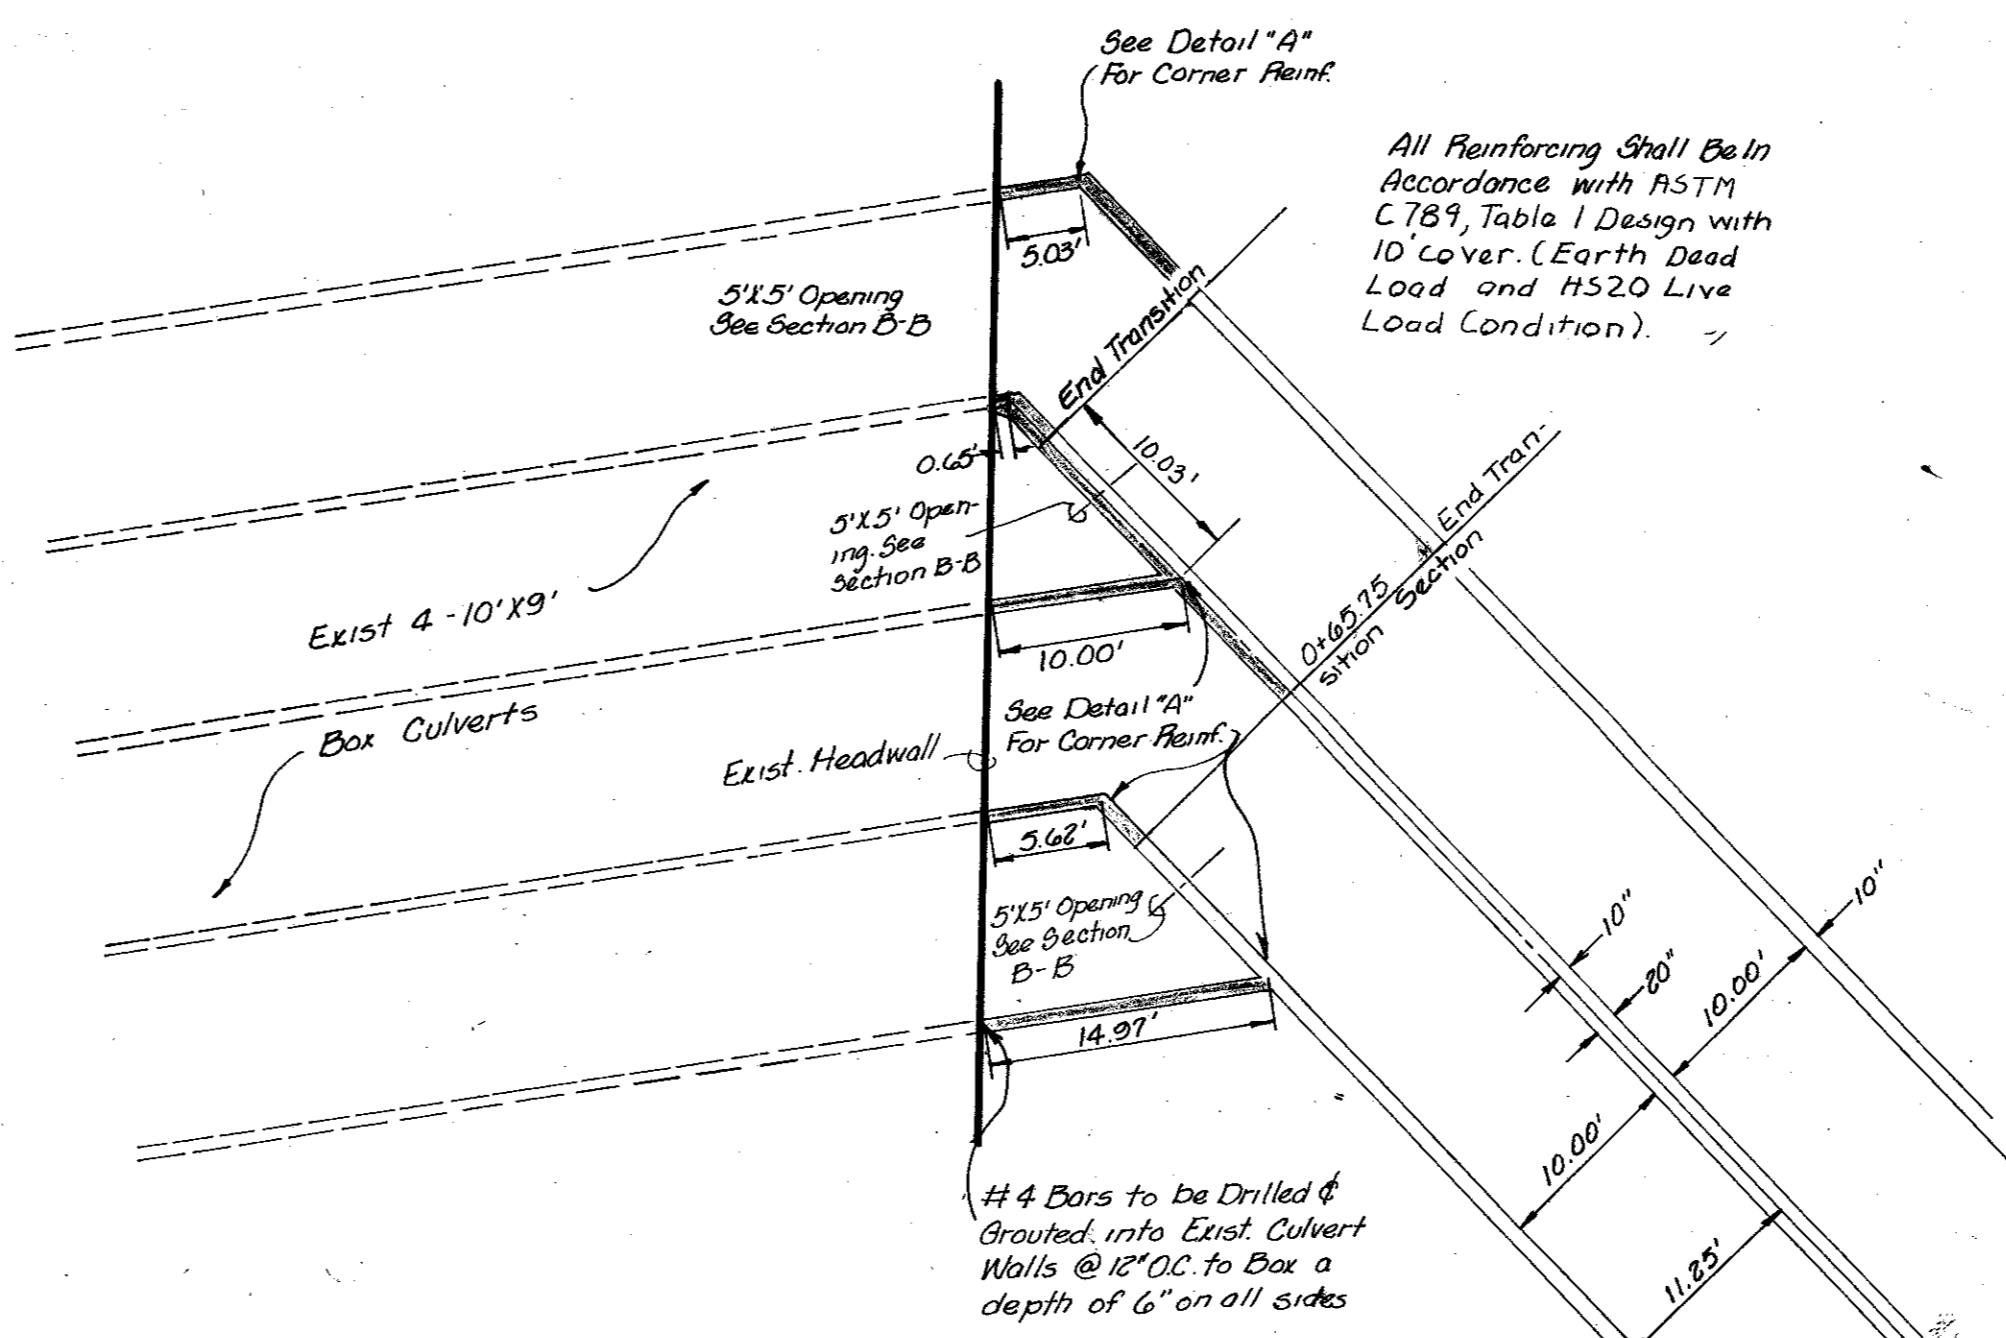 See Detail "A"
For Corner Reinf.
All Reinforcing Shall Be In
Accordance with ASTM
C789, Table 1 Design with
10' Cover. (Earth Dead
Load and HS20 Live
Load Condition).
5.03'
5'X5' Opening
See Section B-B
End Transition
10.03'
0.65'
5'X5' Open-
ing. See
Section B-B
End Tran-
0+65.75
sition Section
Exist 4 - 10'X9'
10.00'
Box Culverts
See Detail "A"
For Corner Reinf.
Exist. Headwall
5.62'
5'X5' Opening
See Section
B-B
10"
10"
20"
10.00'
14.97'
10.00'
11.25'
#4 Bars to be Drilled &
Grouted into Exist. Culvert
Walls @ 12" O.C. to Box a
depth of 6" on all sides